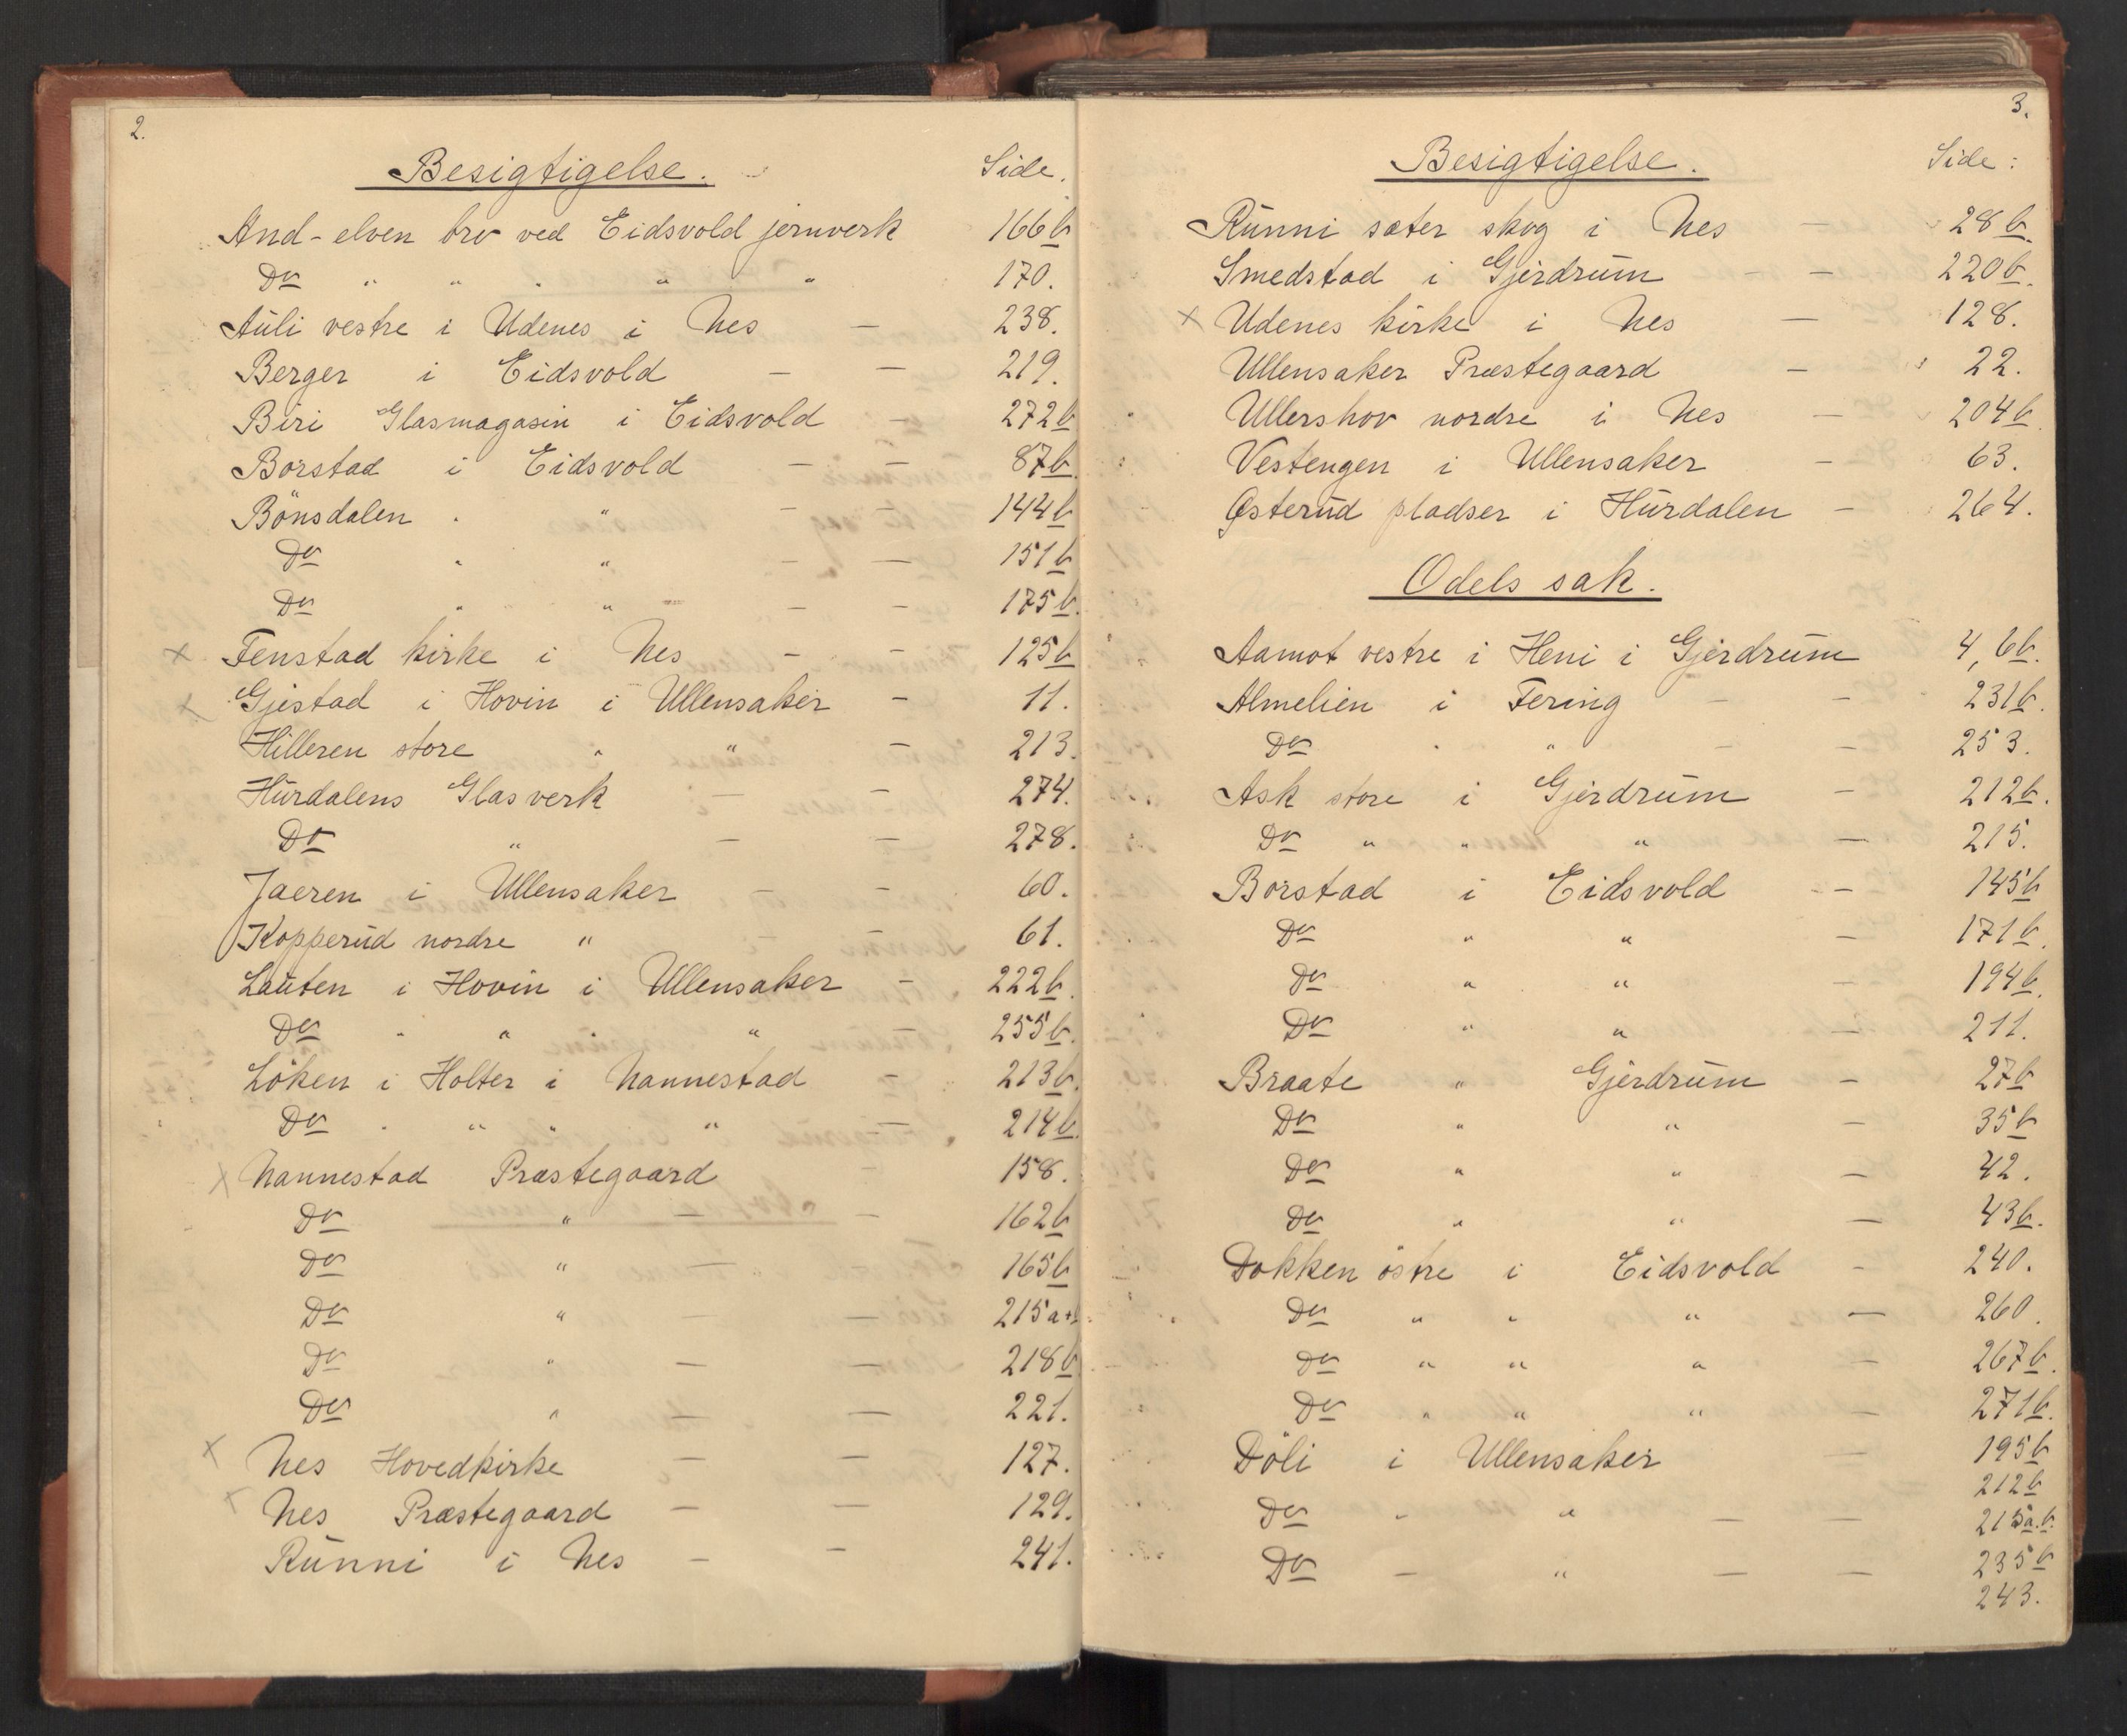 2.
Besigtigelse. Side.
And-elven bro ved Eidsvold jernverk 166b
Do " " " " " 170.
Auli vestre i Udenes i Nes — 238.
Berger i Eidsvold — — 219.
Biri Glasmagasin i Eidsvold — 272b
Borstad i Eidsvold — — 87b
Bönsdalen . " — — 144b
Do " " — — 151b
Do " " — — 175b.
x Fenstad kirke i Nes — — 125b
x Gjestad i Hovin i Ullensaker — 11.
Hilleren store " " — 213.
Hurdalens Glasverk — — 274.
Do " — — 278.
Jaeren i Ullensaker — — 60.
Kopperud nordre " 61.
Lauten i Hovin i Ullensaker — 222b.
Do " " . " 255b.
Löken i Holter i Nannestad — 213b.
Do . " " " 214b.
x Nannestad Præstegaard — 158.
Do " — — 162b
Do " — — 165b
Do " — — 215a+b
Do " — — 218b
Do " — — 221.
x Nes Hovedkirke — — 127.
x Nes Præstegaard — — 129.
Runni i Nes — — 241.
3.
Besigtigelse. Side:
Runni sæter skog i Nes — 28b.
Smedstad i Gjerdrum — — 220b.
x Udenes kirke i Nes — 128.
Ullensaker Præstegaard — 22.
Ullershov nordre i Nes — 204b.
Vestengen i Ullensaker — 63.
Østerud pladser i Hurdalen — 264.
Odels sak.
Aamot vestre i Heni i Gjerdrum 4, 6b.
Almelien i Fering — — 231b.
Do " " — — 253.
Ask store i Gjerdrum — 212b.
Do " " " — 215.
Borstad i Eidsvold — 145b
Do " " — 171b.
Do " " — 194b.
Do " " — 211.
Braate " Gjerdrum — 27b
Do " " — 35b
Do " " — 42.
Do " " — 43b.
Dokken östre i Eidsvold — 240.
Do " " " — 260.
Do " " " — 267b.
Do " " " — 271b.
Döli i Ullensaker — 195b
212b
Do " " — — 215a.b.
Do — " — — 235b
243.